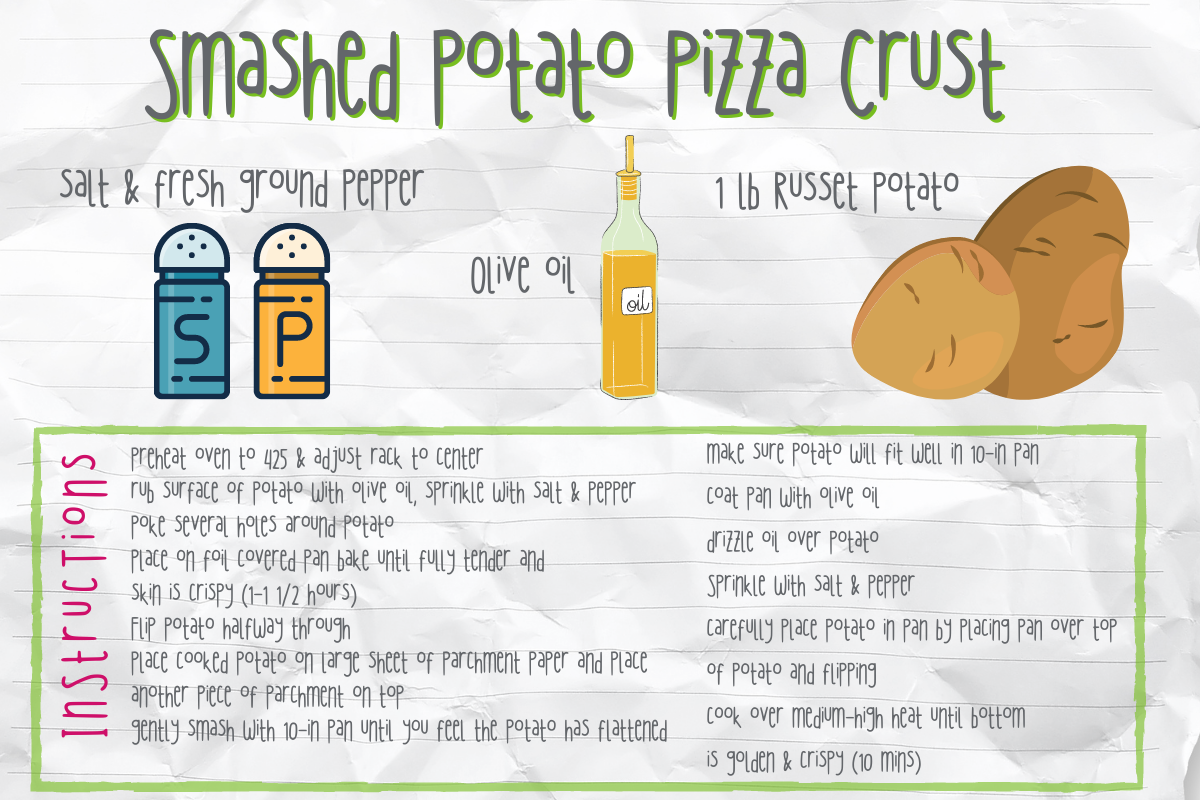 Smashed Potato Pizza Crust
Salt & fresh ground pepper
1 lb Russet Potato
Olive oil
S
P
oil
Instructions
preheat oven to 425 & adjust rack to center
rub surface of potato with olive oil, sprinkle with salt & pepper
poke several holes around potato
place on foil covered pan bake until fully tender and
skin is crispy (1-1 1/2 hours)
Flip potato halfway through
place cooked potato on large sheet of parchment paper and place
another piece of parchment on top
gently smash with 10-in pan until you feel the potato has flattened
make sure potato will fit well in 10-in pan
coat pan with olive oil
drizzle oil over potato
sprinkle with salt & pepper
carefully place potato in pan by placing pan over top
of potato and flipping
cook over medium-high heat until bottom
is golden & crispy (10 mins)